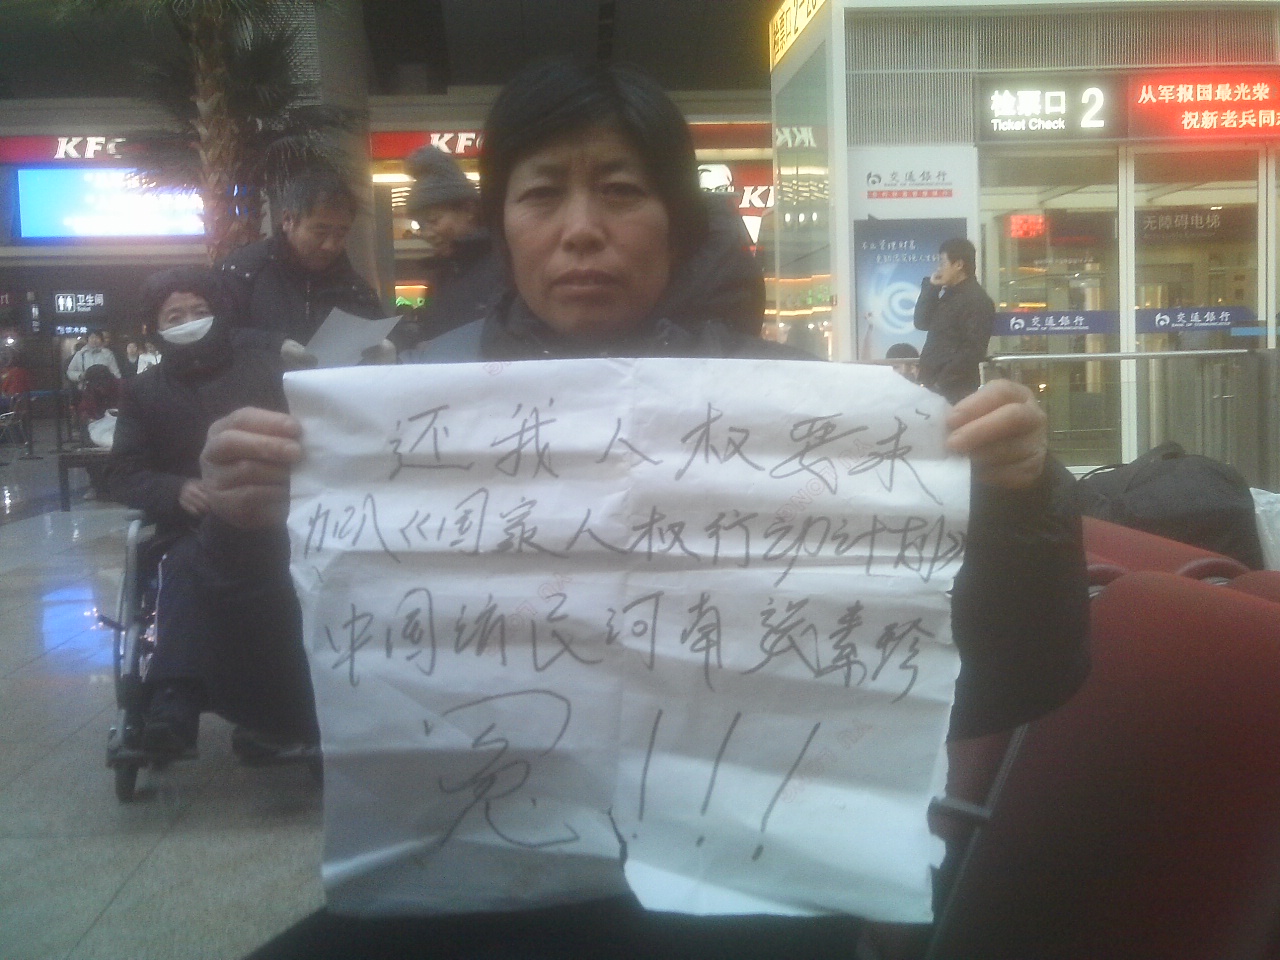 KFC
KFC
检票口 2
Ticket Check
从军报国最光荣
祝新老兵同
交通银行
BANK OF COMMUNICATIONS
无障碍电梯
卫生间
交通银行
交通银行
还我人权要求
加入《国家人权行动计划》
中国访民河南张素珍
冤!!!